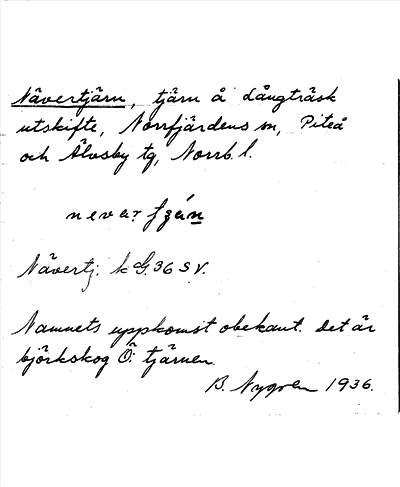 Nävertjärn, tjärn å Långträsk
utskifte, Norrfjärdens sn, Piteå
och Älvsby tg, Norrb. l.
Nävertj. k G. 36 SV.
Namnets uppkomst obekant. Det är
björkskog Ö. tjärnen.
B. Nygren 1936.